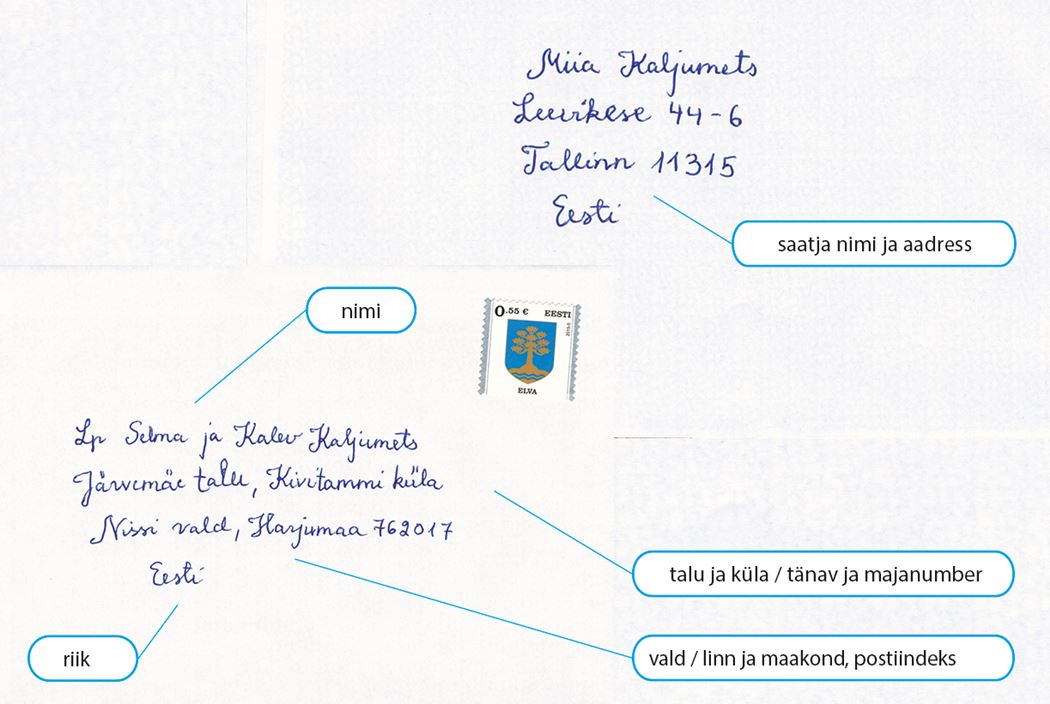 Miia Kaljumets
Leevikese 44-6
Tallinn 11315
Eesti
saatja nimi ja aadress
nimi
0.55 € EESTI
ELVA
Lp Selma ja Kalev Kaljumets
Järvemäe talu, Kivitammi küla
Nissi vald, Harjumaa 762017
Eesti
talu ja küla / tänav ja majanumber
vald / linn ja maakond, postiindeks
riik